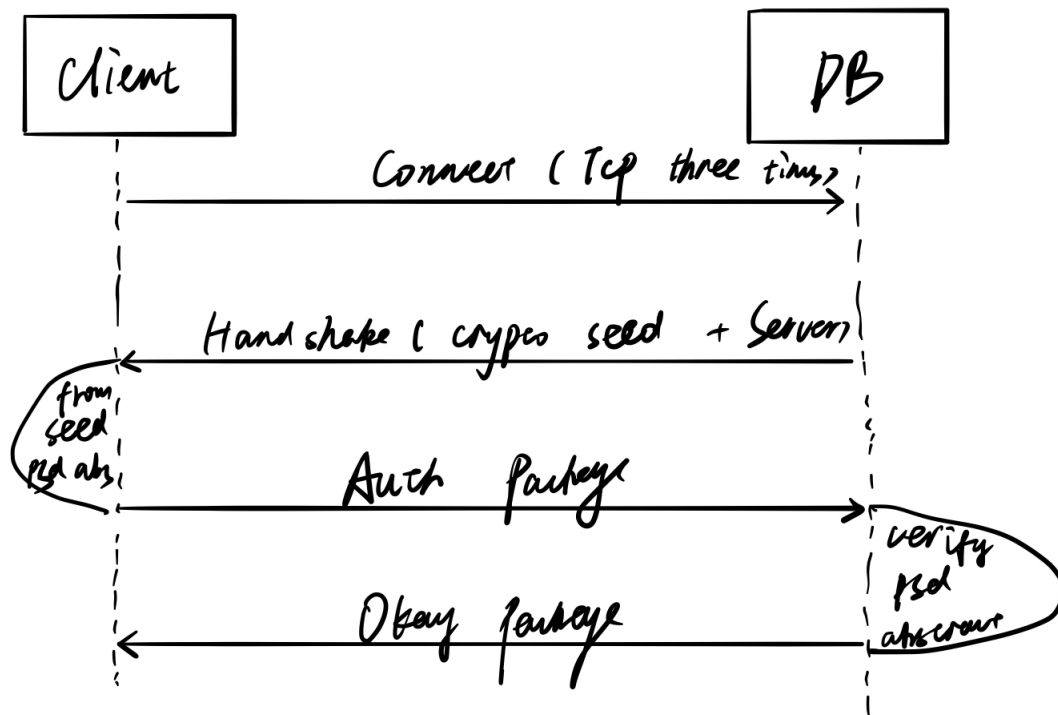 Client
DB
Connect (Tcp three times)
Handshake (crypto seed + Server)
from
seed
psd abs
Auth Package
verify
psd
Okay Package